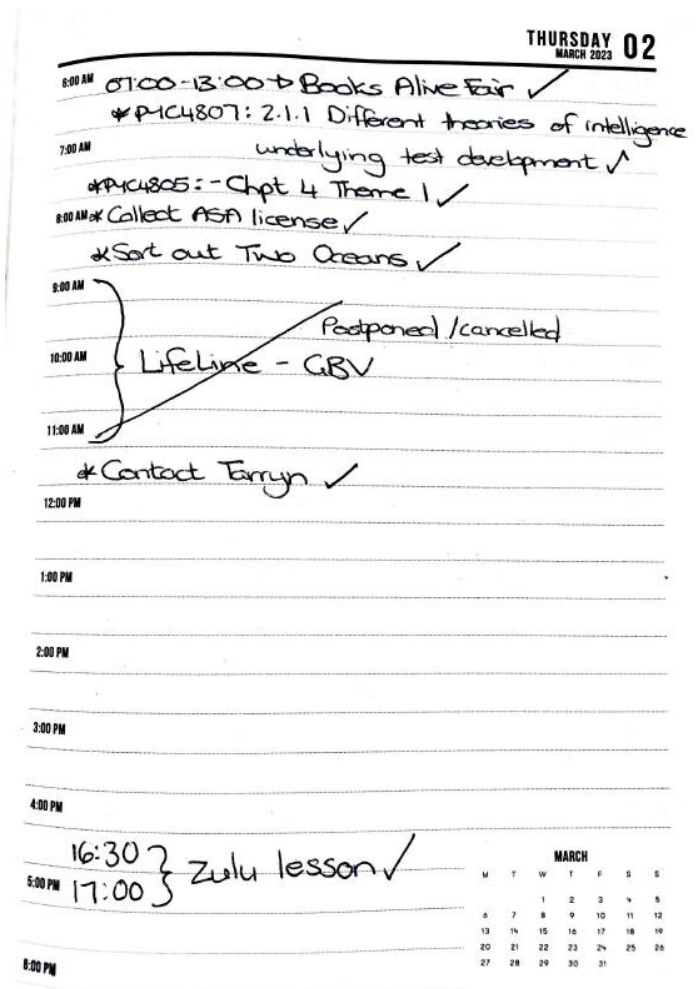 THURSDAY 02
MARCH 2023
6:00 AM 07:00-13:00 → Books Alive Fair ✓
*PYC4807: 2.1.1 Different theories of intelligence
7:00 AM underlying test development ✓
*PYC4805: - Chpt 4 Theme 1 ✓
8:00 AM * Collect ASA license ✓
*Sort out Two Oceans ✓
9:00 AM
Postponed/cancelled
10:00 AM LifeLine - GBV
11:00 AM
*Contact Tarryn ✓
12:00 PM
1:00 PM
2:00 PM
3:00 PM
4:00 PM
16:30
5:00 PM 17:00 } Zulu lesson ✓
6:00 PM
MARCH
M T W T F S S
1 2 3 4 5
6 7 8 9 10 11 12
13 14 15 16 17 18 19
20 21 22 23 24 25 26
27 28 29 30 31